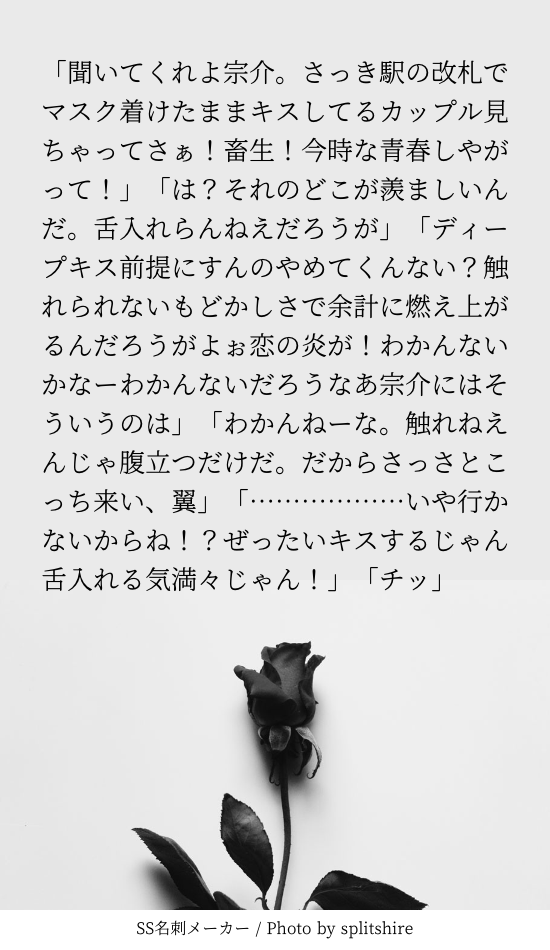 「聞いてくれよ宗介。さっき駅の改札で
マスク着けたままキスしてるカップル見
ちゃってさぁ！畜生！今時な青春しやが
って！」「は？それのどこが羨ましいん
だ。舌入れらんねえだろうが」「ディー
プキス前提にすんのやめてくんない？触
れられないもどかしさで余計に燃え上が
るんだろうがよぉ恋の炎が！わかんない
かなーわかんないだろうなあ宗介にはそ
ういうのは」「わかんねーな。触れねえ
んじゃ腹立つだけだ。だからさっさとこ
っち来い、翼」「………………いや行か
ないからね！？ぜったいキスするじゃん
舌入れる気満々じゃん！」「チッ」
SS名刺メーカー / Photo by splitshire